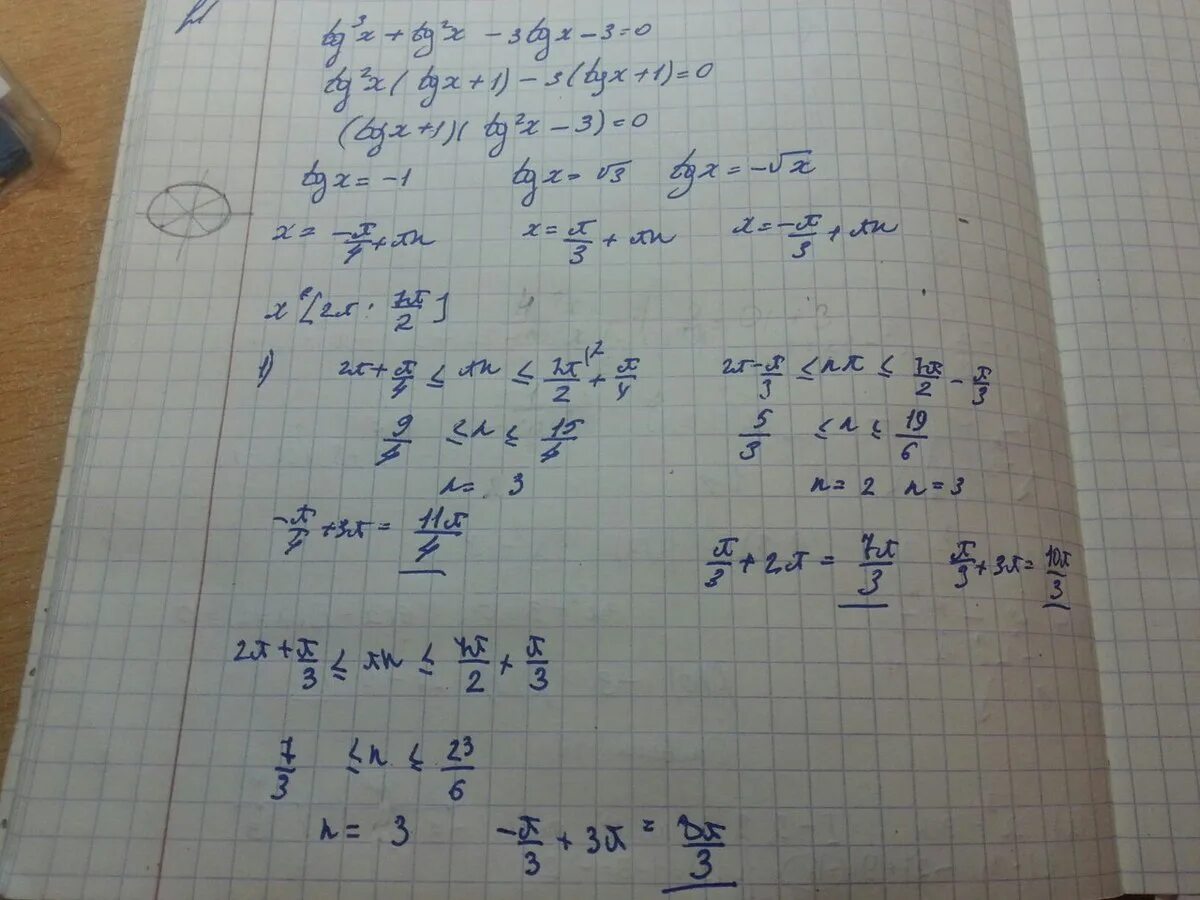 tg³x + tg²x - 3tgx - 3 = 0
tg²x(tgx + 1) - 3(tgx + 1) = 0
(tgx + 1)(tg²x - 3) = 0
tgx = -1 tgx = √3 tgx = -√x
x = -π/4 + πn x = π/3 + πn x = -π/3 + πn
x [2π; 7π/2]
1) 2π + π/4 ≤ πn ≤ 7π/2 + π/4 2π - π/3 ≤ nπ ≤ 7π/2 - π/3
9/4 ≤ n ≤ 15/4 5/3 ≤ n ≤ 19/6
n = 3 n = 2 n = 3
-π/4 + 3π = 11π/4 π/3 + 2π = 7π/3 π/3 + 3π = 10π/3
2π + π/3 ≤ πn ≤ 7π/2 + π/3
7/3 ≤ n ≤ 23/6
n = 3 -π/3 + 3π = 8π/3